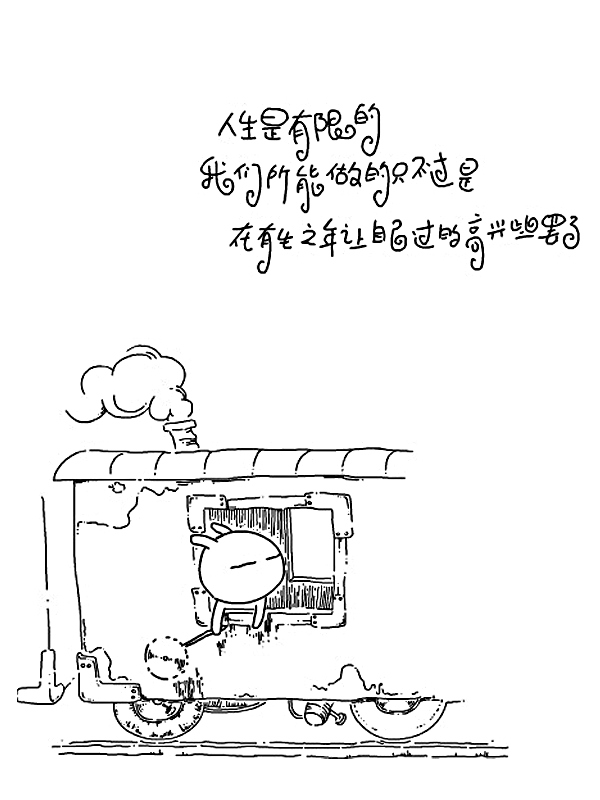 人生是有限的
我们所能做的只不过是
在有生之年让自己过的高兴些罢了